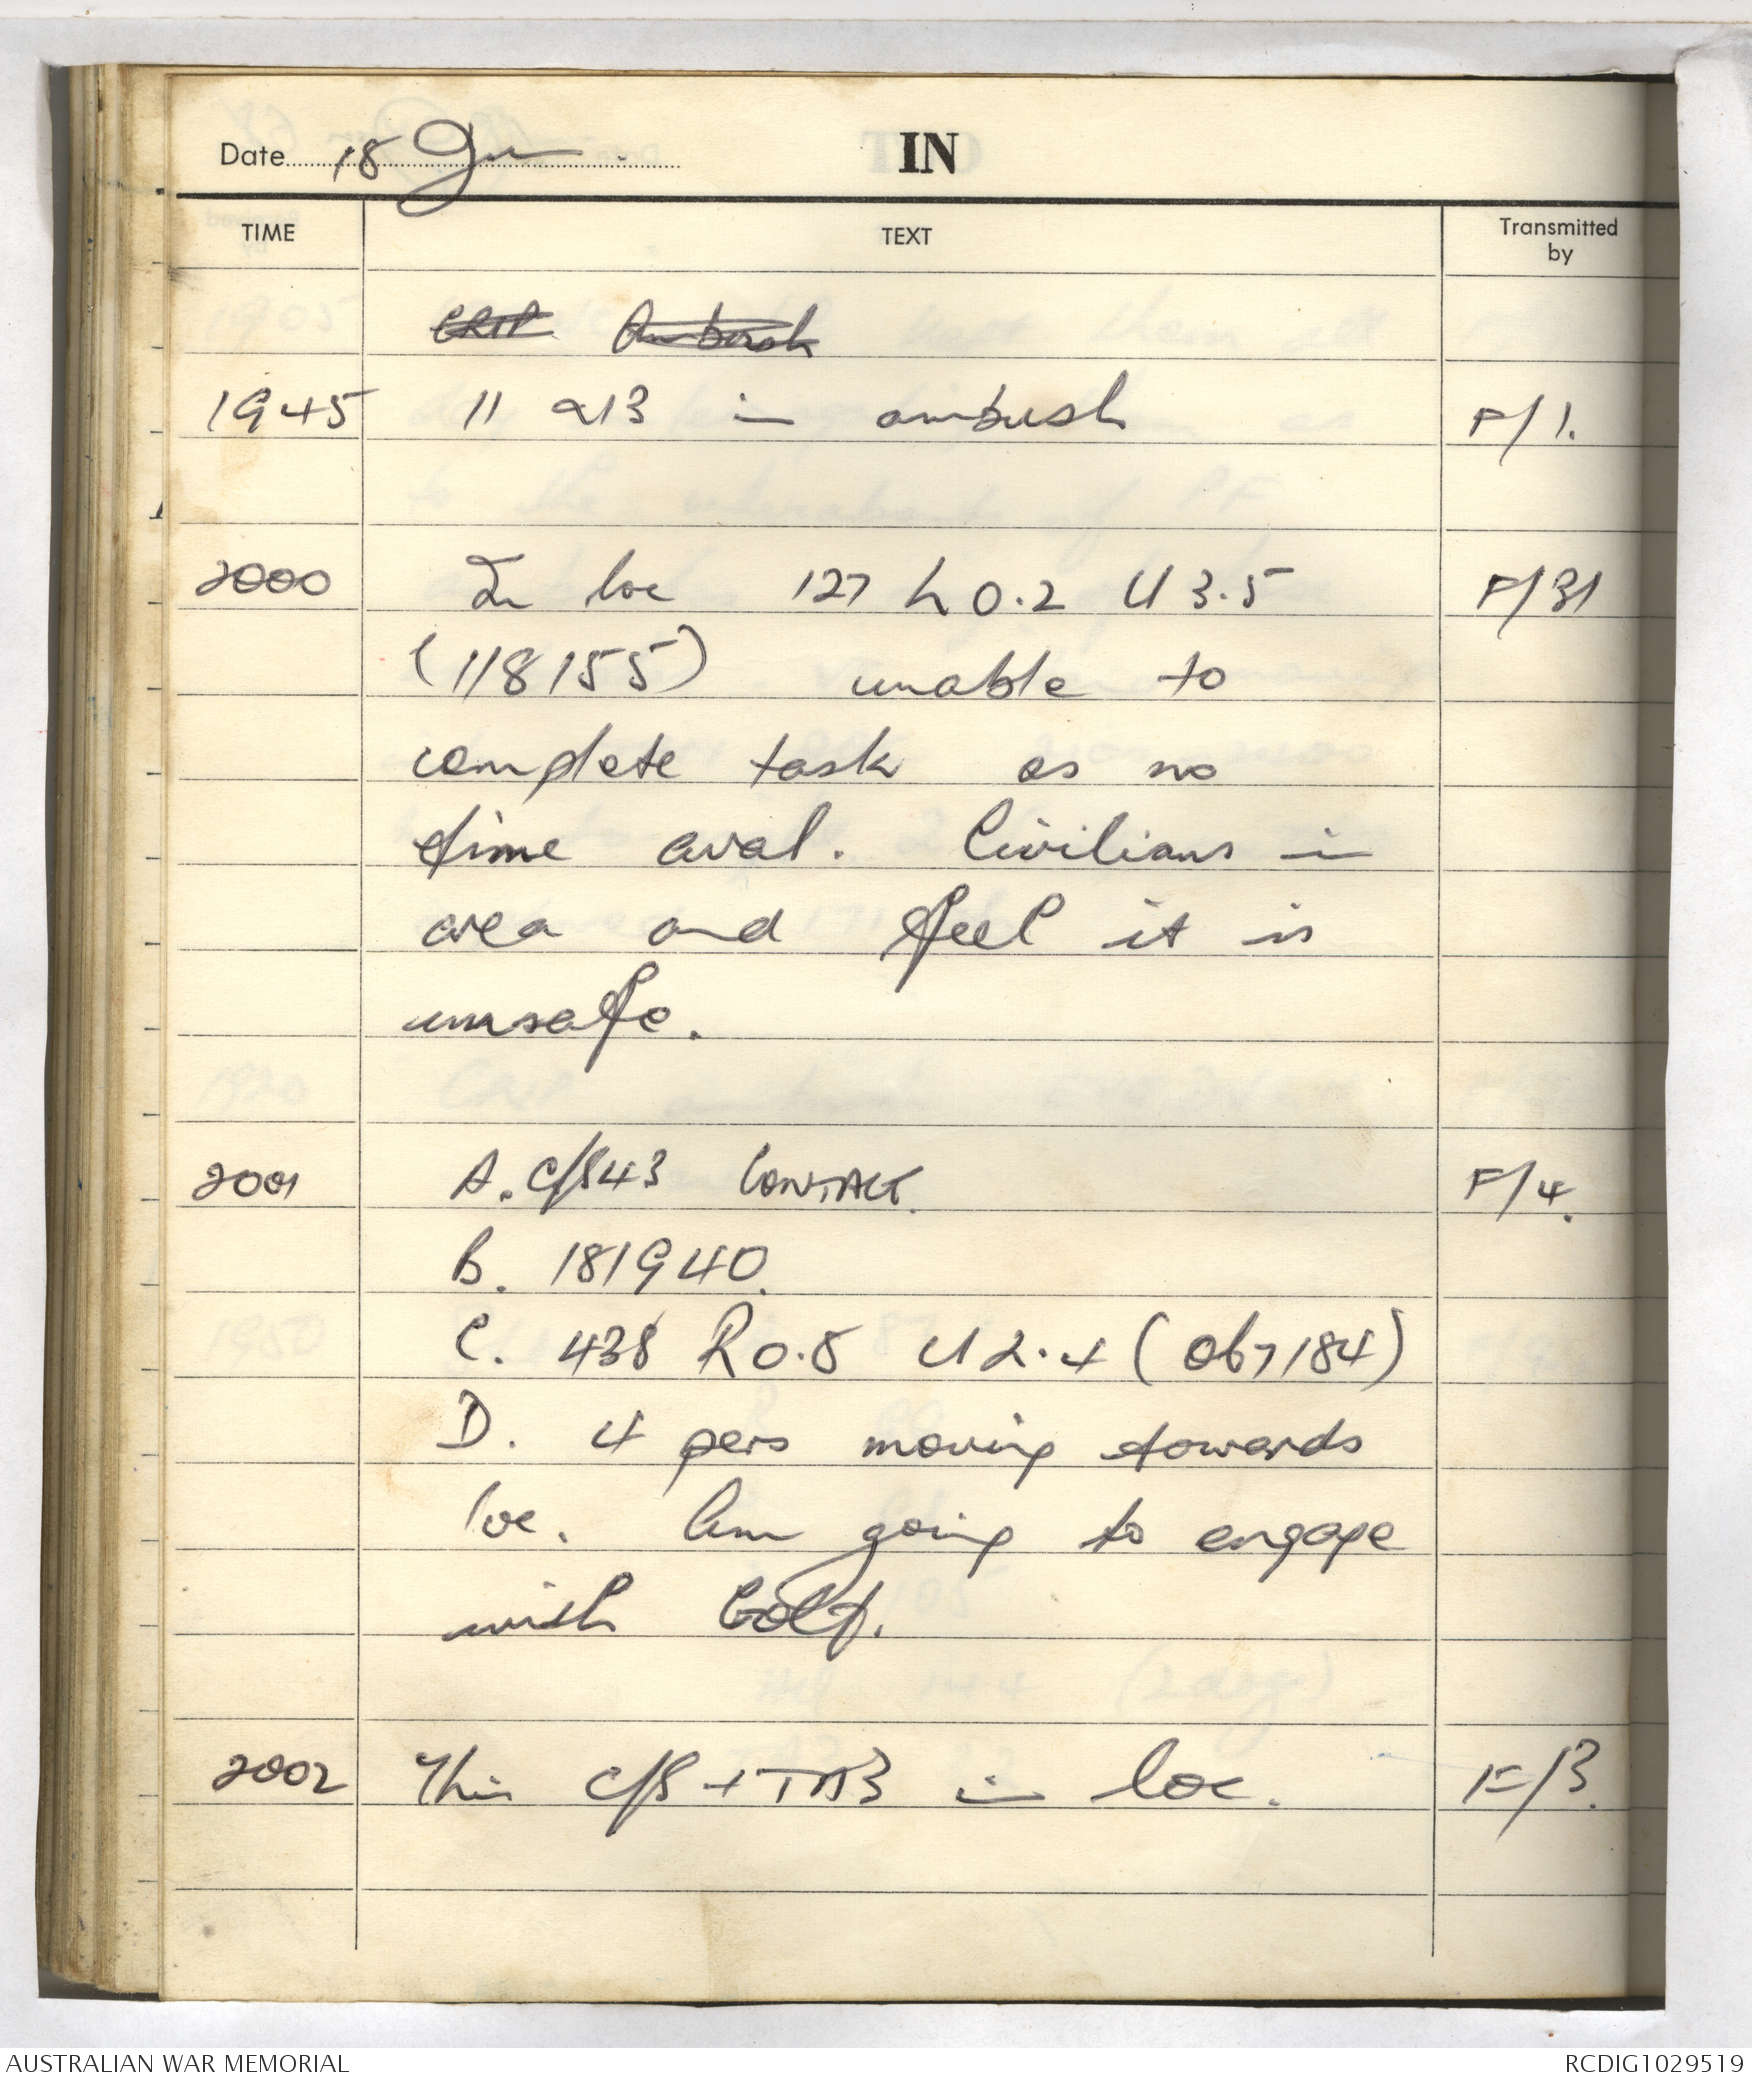 Date 18 Jun. IN
TIME TEXT Transmitted by
CRIP Ambush
1945 11 & 13 in ambush F/1.
2000 In loc 127 L 0.2 U 3.5 F/31
(118155) unable to
complete task as no
time aval. Civilians in
area and feel it is
unsafe.
2001 A. C/S43 CONTACT. F/4.
B. 181940.
C. 438 R0.8 U2.4 (067184)
D. 4 pers moving towards
loc. Am going to engage
with
2002 This C/S + in loc. F/3.
AUSTRALIAN WAR MEMORIAL RCDIG1029519